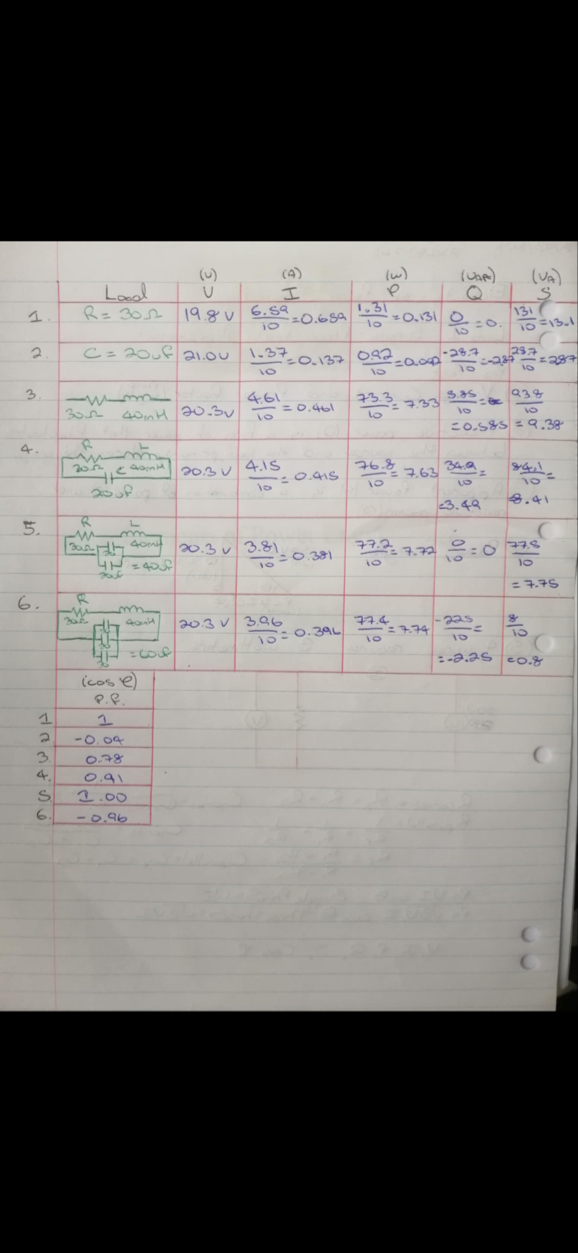 (V) (A) (W) (VAR) (VA)
Load V I P Q S
1. R = 30Ω 19.8 V 6.59/10 = 0.659 1.31/10 = 0.131 0/10 = 0. 131/10 = 13.1
2. C = 20uF 21.0V 1.37/10 = 0.137 0.92/10 = 0.092 -28.7/10 = -2.87 28.7/10 = 2.87
3. 30Ω 40mH 20.3V 4.61/10 = 0.461 73.3/10 = 7.33 5.85/10 = 938/10
= 0.585 = 9.38
4. R L
30Ω C 40mH 20.3 V 4.15/10 = 0.415 76.8/10 = 7.63 34.9/10 = 84.1/10 =
20uF =3.49 8.41
5. R L
30Ω 40mH 20.3 V 3.81/10 = 0.381 77.2/10 = 7.72 0/10 = 0 77.5/10
= 40uF = 7.75
6. R
30Ω 40mH 20.3 V 3.96/10 = 0.396 77.4/10 = 7.74 -22.5/10 = 8/10
= 60uF = -2.25 = 0.8
(cos φ)
P.F.
1 1
2 -0.04
3. 0.78
4. 0.91
5. 1.00
6. -0.96